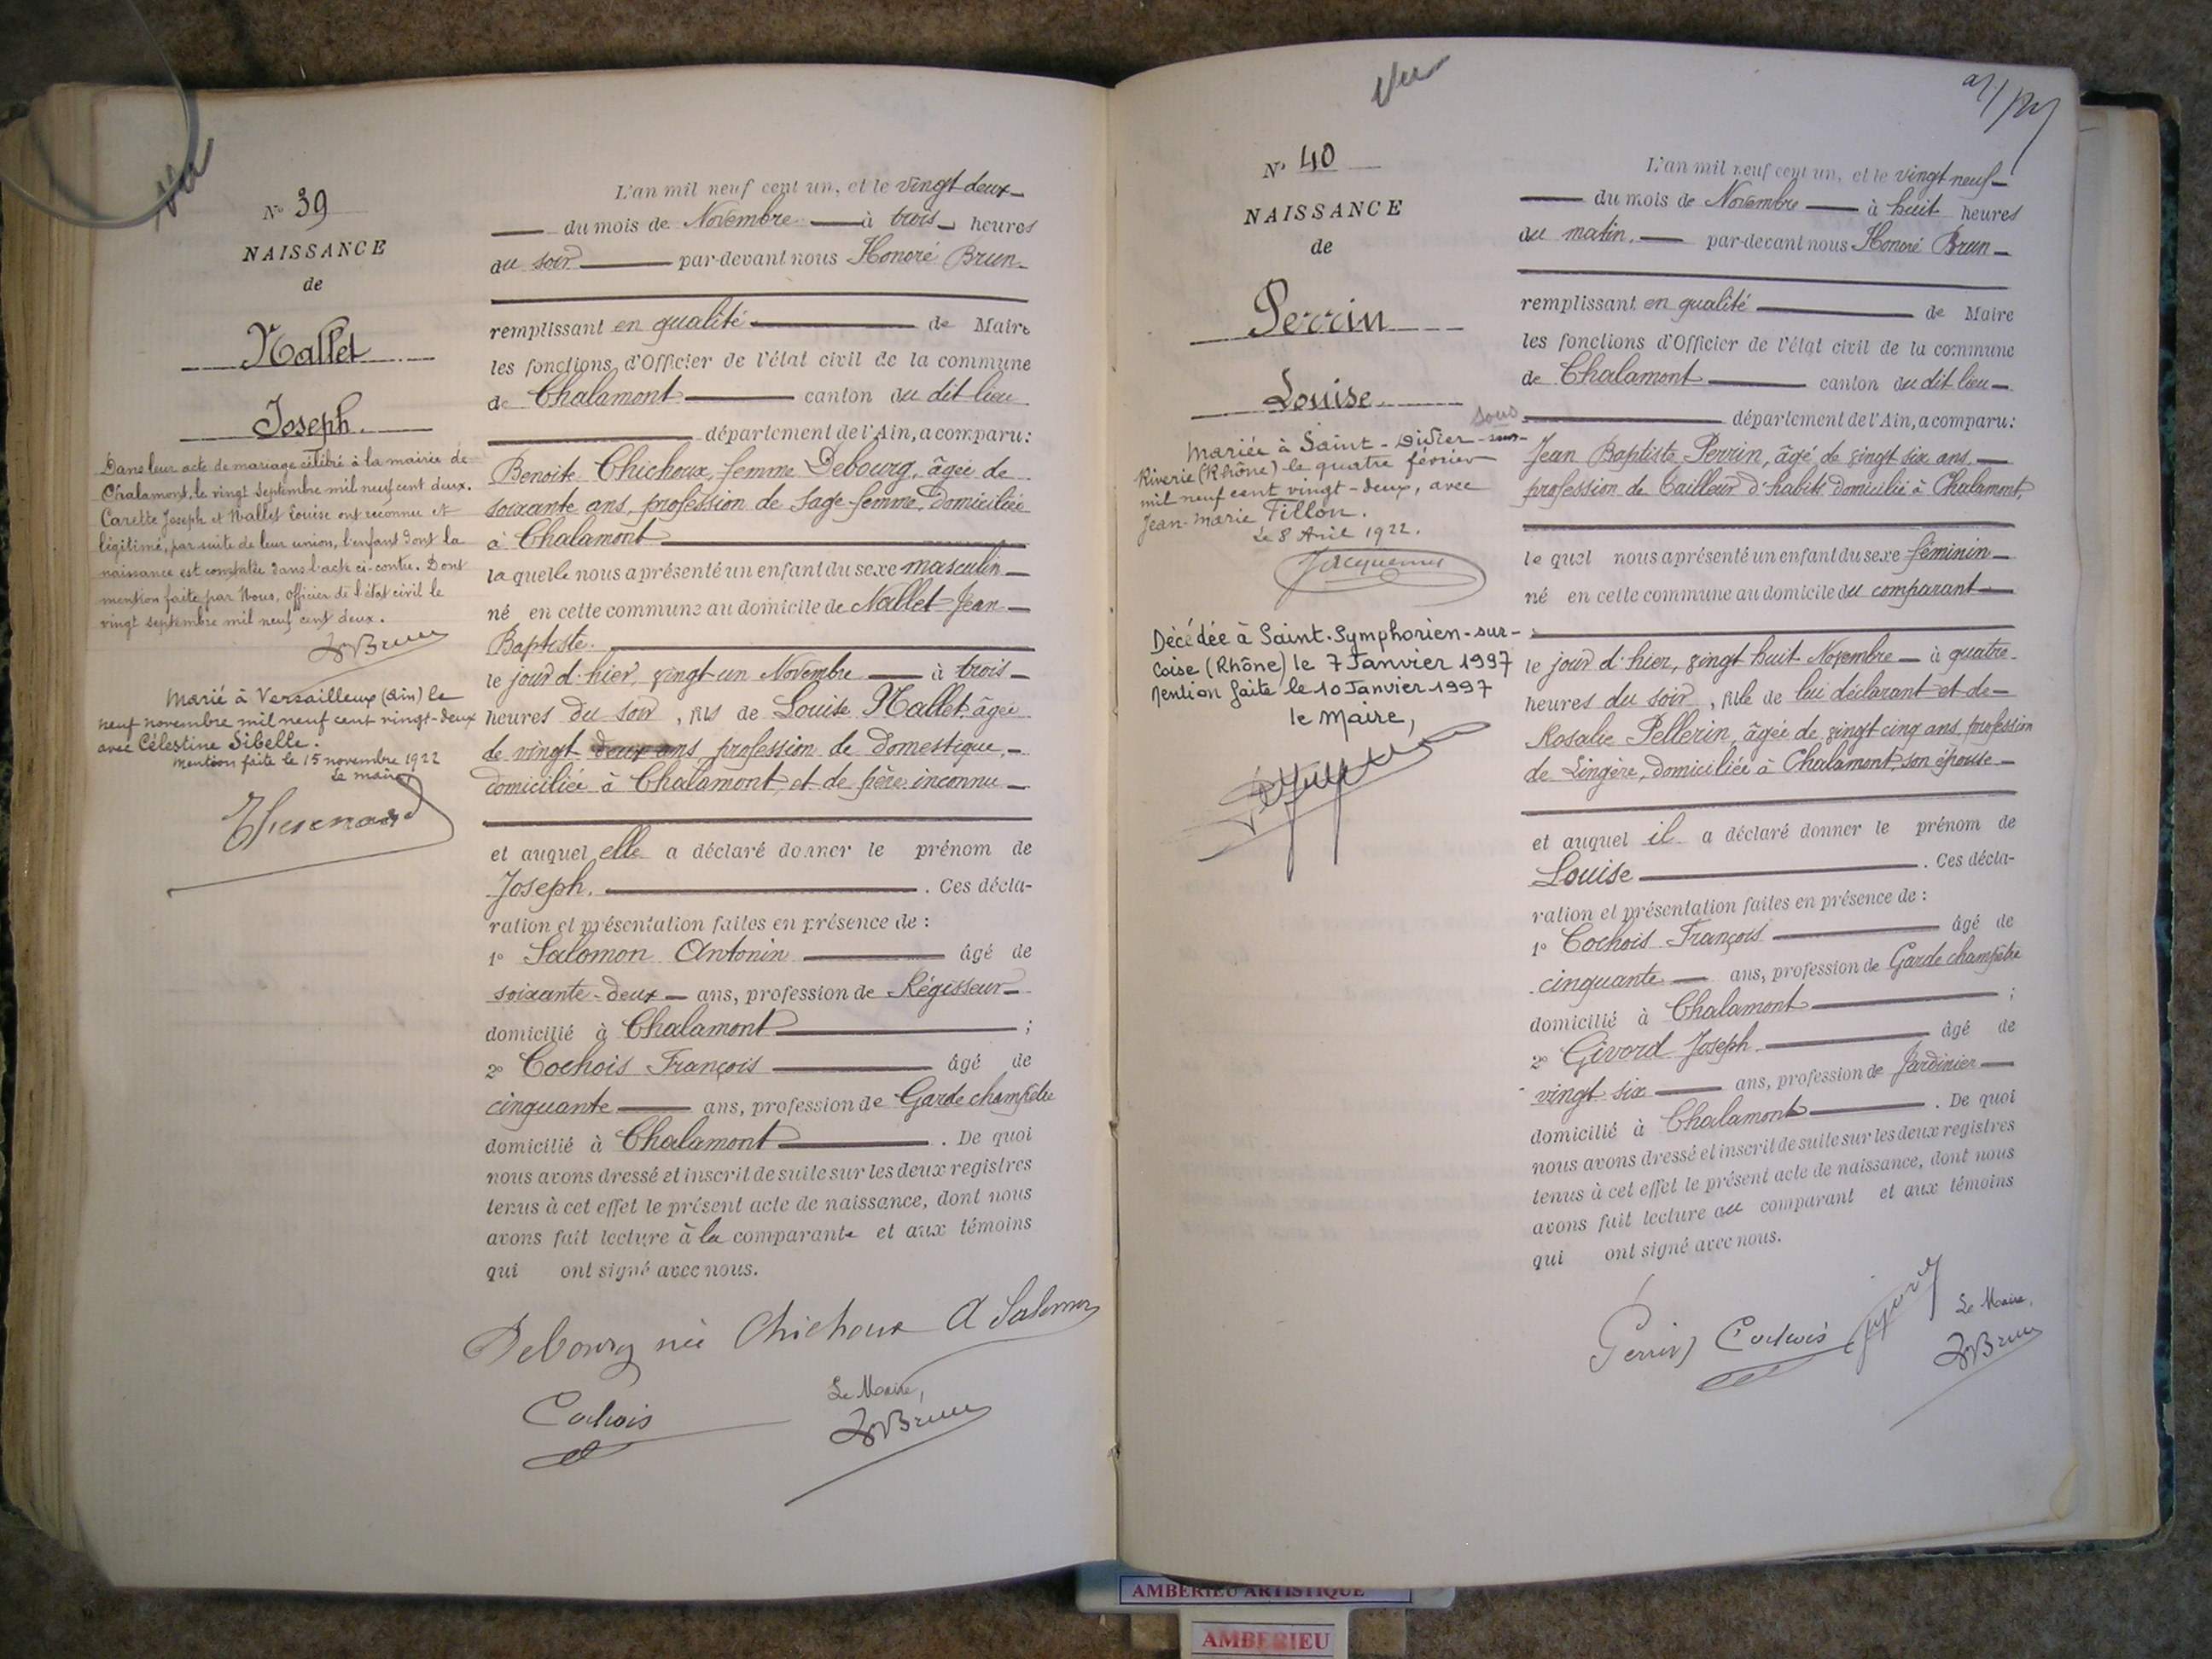 Vu
N° 39
NAISSANCE
de
Nallet
Joseph.
Dans leur acte de mariage célébré à la mairie de
Chalamont, le vingt Septembre mil neuf cent deux.
Carette Joseph et Nallet Louise ont reconnu et
légitimé, par suite de leur union, l'enfant dont la
naissance est constatée dans l'acte ci-contre. Dont
mention faite par Nous, Officier de l'état civil le
vingt septembre mil neuf cent deux.
HBrun
Marié à Versailleux (Ain) le
neuf novembre mil neuf cent vingt-deux
avec Célestine Sibelle.
Mention faite le 15 novembre 1922
Le maire
L'an mil neuf cent un, et le vingt deux
du mois de Novembre à trois heures
du soir par-devant nous Honoré Brun
remplissant en qualité de Maire
les fonctions d'Officier de l'état civil de la commune
de Chalamont canton du dit lieu
département de l'Ain, a comparu:
Benoite Chichoux, femme Debourg, âgée de
soixante ans, profession de Sage-femme, domiciliée
à Chalamont
la quelle nous a présenté un enfant du sexe masculin
né en cette commune au domicile de Nallet Jean
Baptiste.
le jour d'hier, vingt-un Novembre à trois
heures du soir, fils de Louise Nallet, âgée
de vingt deux ans, profession de domestique,
domiciliée à Chalamont, et de père inconnu
et auquel elle a déclaré donner le prénom de
Joseph. . Ces décla-
ration et présentation faites en présence de :
1° Salomon Antonin âgé de
soixante-deux ans, profession de Régisseur
domicilié à Chalamont ;
2° Cochois François âgé de
cinquante ans, profession de Garde champêtre
domicilié à Chalamont . De quoi
nous avons dressé et inscrit de suite sur les deux registres
tenus à cet effet le présent acte de naissance, dont nous
avons fait lecture à la comparante et aux témoins
qui ont signé avec nous.
Debourg née Chichoux A Salomon
Cochois
Le Maire,
HBrun
Vu
N° 40
NAISSANCE
de
Perrin
Louise.
sous
Mariée à Saint-Didier-sous-
Riverie (Rhône) le quatre février
mil neuf cent vingt-deux, avec
Jean-Marie Fillon.
Le 8 Avril 1922.
Jacquemus
Décédée à Saint-Symphorien-sur-
Coise (Rhône) le 7 Janvier 1997
Mention faite le 10 Janvier 1997
le Maire,
L'an mil neuf cent un, et le vingt neuf
du mois de Novembre à huit heures
du matin. par-devant nous Honoré Brun
remplissant en qualité de Maire
les fonctions d'Officier de l'état civil de la commune
de Chalamont canton du dit lieu
département de l'Ain, a comparu:
Jean Baptiste Perrin, âgé de vingt six ans,
profession de tailleur d'habits, domicilié à Chalamont,
le quel nous a présenté un enfant du sexe féminin
né en cette commune au domicile du comparant
le jour d'hier, vingt huit Novembre à quatre
heures du soir, fille de lui déclarant et de
Rosalie Pellerin, âgée de vingt cinq ans, profession
de Lingère, domiciliée à Chalamont, son épouse
et auquel il a déclaré donner le prénom de
Louise . Ces décla-
ration et présentation faites en présence de :
1° Cochois François âgé de
cinquante ans, profession de Garde champêtre
domicilié à Chalamont ;
2° Givord Joseph âgé de
vingt six ans, profession de Jardinier
domicilié à Chalamont . De quoi
nous avons dressé et inscrit de suite sur les deux registres
tenus à cet effet le présent acte de naissance, dont nous
avons fait lecture au comparant et aux témoins
qui ont signé avec nous.
Perrin Cochois Givord
Le Maire,
HBrun
AMBERIEU ARTISTIQUE
AMBERIEU